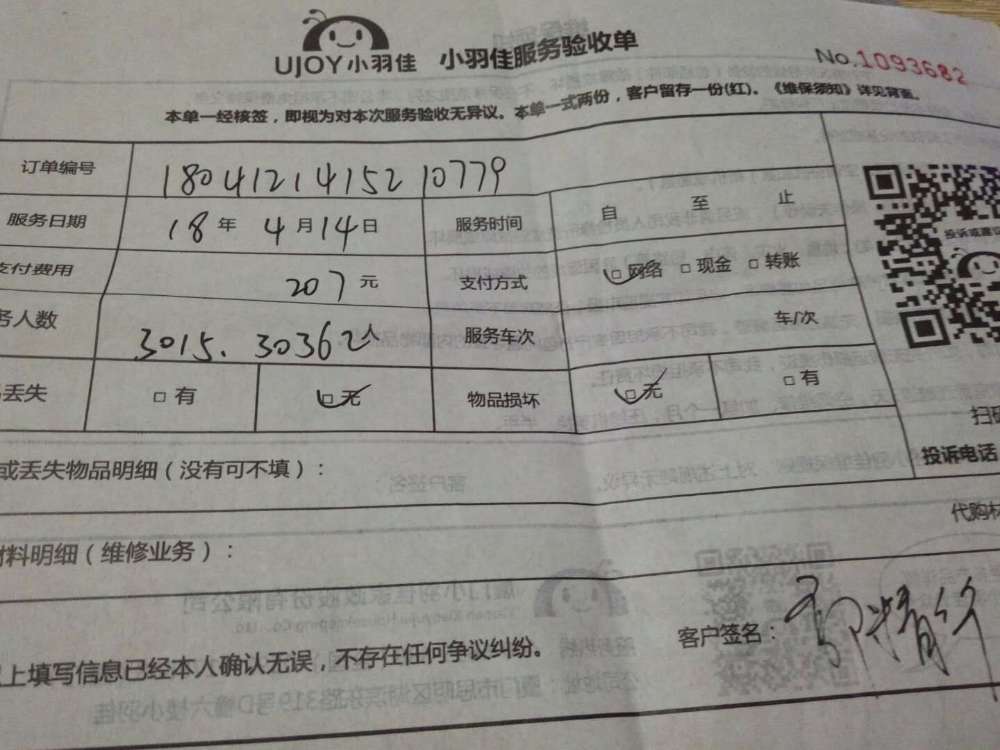 UJOY小羽佳 小羽佳服务验收单
No.1093682
本单一经核签，即视为对本次服务验收无异议。本单一式两份，客户留存一份(红)。《维保须知》详见背面。
订单编号 1804121415210779
服务日期 18年4月14日 服务时间 自 至 止
支付费用 207元 支付方式 □网络 □现金 □转账
务人数 3015.30362人 服务车次 车/次
丢失 □有 □无 物品损坏 □无 □有
投诉或建议
扫
投诉电话
或丢失物品明细（没有可不填）：
代购材
材料明细（维修业务）：
客户签名：
上填写信息已经本人确认无误，不存在任何争议纠纷。